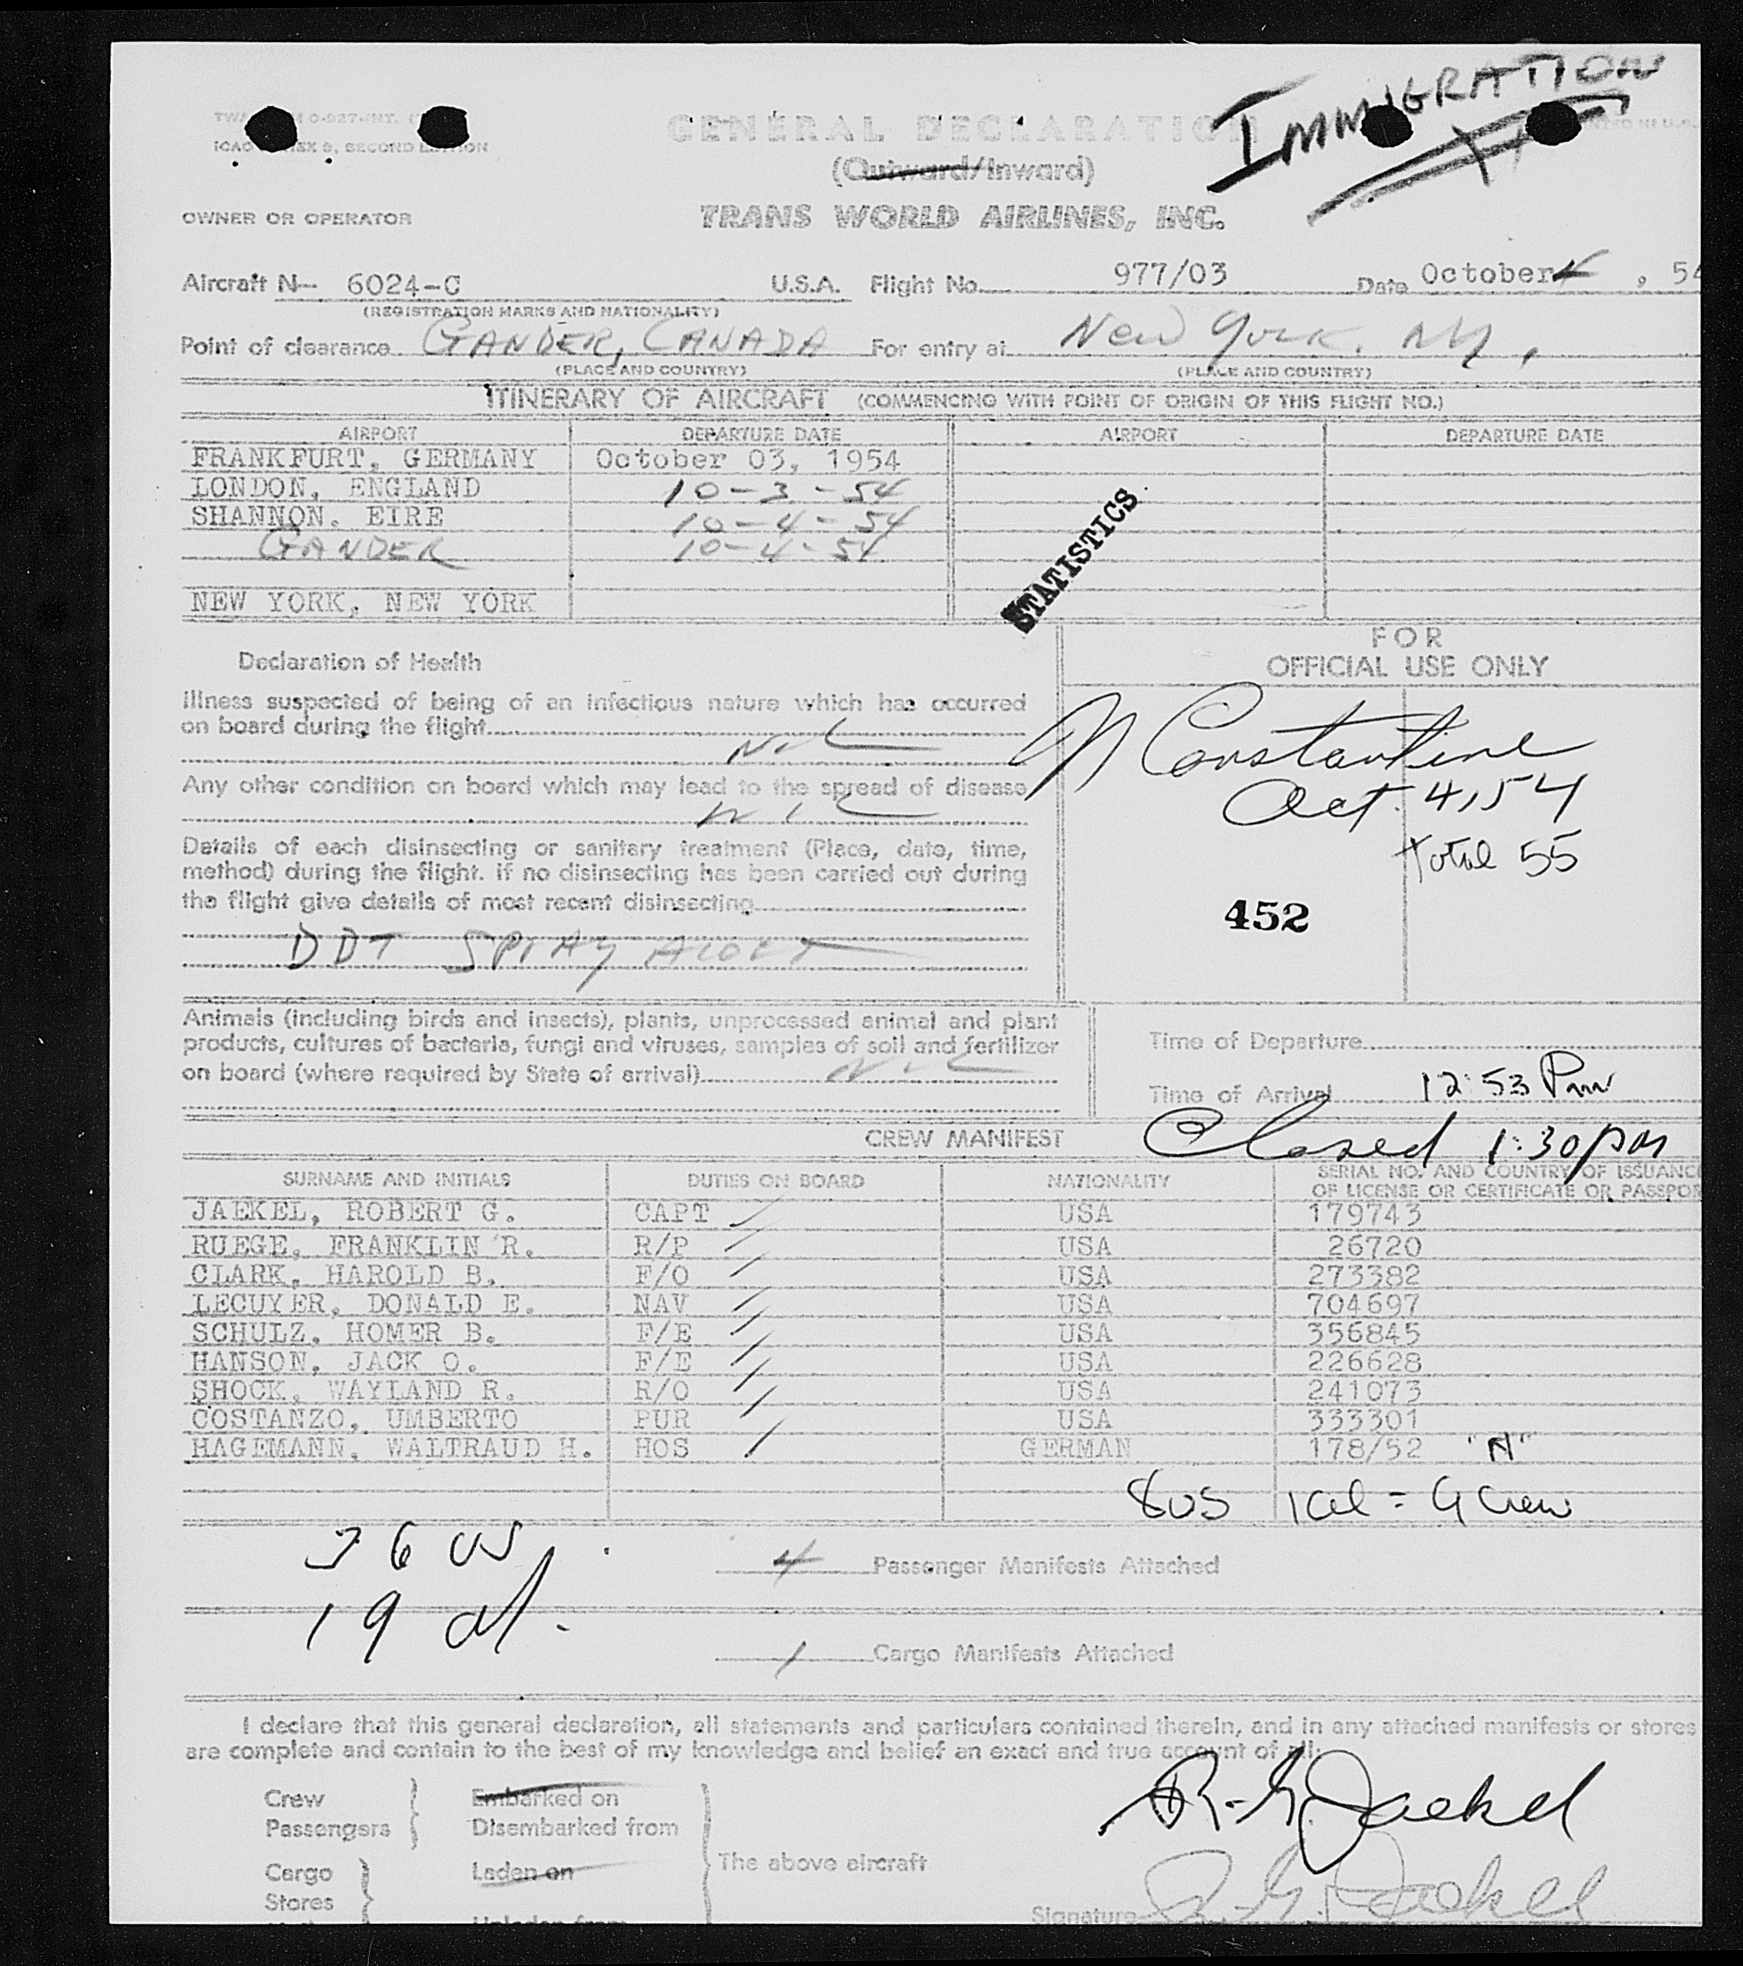 IMMIGRATION
GENERAL DECLARATION
(Outward/Inward)
OWNER OR OPERATOR TRANS WORLD AIRLINES, INC.
Aircraft N— 6024-C U.S.A. Flight No. 977/03 Date October 4, 54
(REGISTRATION MARKS AND NATIONALITY)
Point of clearance GANDER, CANADA For entry at New York. NY.
(PLACE AND COUNTRY) (PLACE AND COUNTRY)
ITINERARY OF AIRCRAFT (COMMENCING WITH POINT OF ORIGIN OF THIS FLIGHT NO.)
AIRPORT DEPARTURE DATE AIRPORT DEPARTURE DATE
FRANKFURT, GERMANY October 03, 1954
LONDON, ENGLAND 10-3-54
SHANNON. EIRE 10-4-54
GANDER 10-4-54
NEW YORK, NEW YORK
STATISTICS
FOR
OFFICIAL USE ONLY
Declaration of Health
Illness suspected of being of an infectious nature which has occurred
on board during the flight
NIL
Any other condition on board which may lead to the spread of disease
NIL
Details of each disinsecting or sanitary treatment (Place, date, time,
method) during the flight. if no disinsecting has been carried out during
the flight give details of most recent disinsecting
DDT SPRAY
N Constantine
Oct. 4, 54
Total 55
452
Animals (including birds and insects), plants, unprocessed animal and plant
products, cultures of bacteria, fungi and viruses, samples of soil and fertilizer
on board (where required by State of arrival) NIL
Time of Departure
Time of Arrival 12:53 Pm
Closed 1:30 pm
CREW MANIFEST
SURNAME AND INITIALS DUTIES ON BOARD NATIONALITY SERIAL NO. AND COUNTRY OF ISSUANC
OF LICENSE OR CERTIFICATE OR PASSPOR
JAEKEL, ROBERT G. CAPT USA 179743
RUEGE, FRANKLIN R. R/P USA 26720
CLARK, HAROLD B. F/O USA 273382
LECUYER, DONALD E. NAV USA 704697
SCHULZ, HOMER B. F/E USA 356845
HANSON, JACK O. F/E USA 226628
SHOCK, WAYLAND R. R/O USA 241073
COSTANZO, UMBERTO PUR USA 333301
HAGEMANN, WALTRAUD H. HOS GERMAN 178/52 "A"
8 US 1 al = 9 Crew
36 US
19 al.
4 Passenger Manifests Attached
1 Cargo Manifests Attached
I declare that this general declaration, all statements and particulars contained therein, and in any attached manifests or stores
are complete and contain to the best of my knowledge and belief an exact and true account of all:
Crew Embarked on
Passengers Disembarked from
Cargo Laden on
Stores
The above aircraft
R. G. Jaekel
Signature R. G. Jaekel